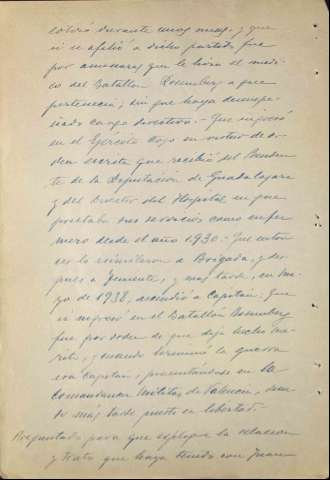 cotizó durante unos meses, y que
si se afilió a dicho partido, fue
por amenazas que le hizo el médi-
co del Batallón Rosemberg a que
pertenecía; sin que haya desempe-
ñado cargo directivo.- Que ingresó
en el Ejército Rojo en motivo de or-
den escrita que recibió del Presiden-
te de la Diputación de Guadalajara
y del Director del Hospital en que
prestaba sus servicios como enfer-
mero desde el año 1930.- Que enton-
ces lo asimilaron a Brigada, y des-
pues a Teniente, y mas tarde, en Ma-
yo de 1938, ascendió a Capitan: Que
si ingresó en el Batallón Rosemberg
fue por orden de que deja hecho mé-
rito, y cuando terminó la guerra
era Capitan, presentandose en la
Comandancia Militar de Valencia, sien-
do más tarde puesto en libertad.
Preguntado para que explique la relacion
y trato que haya tenido con Juan